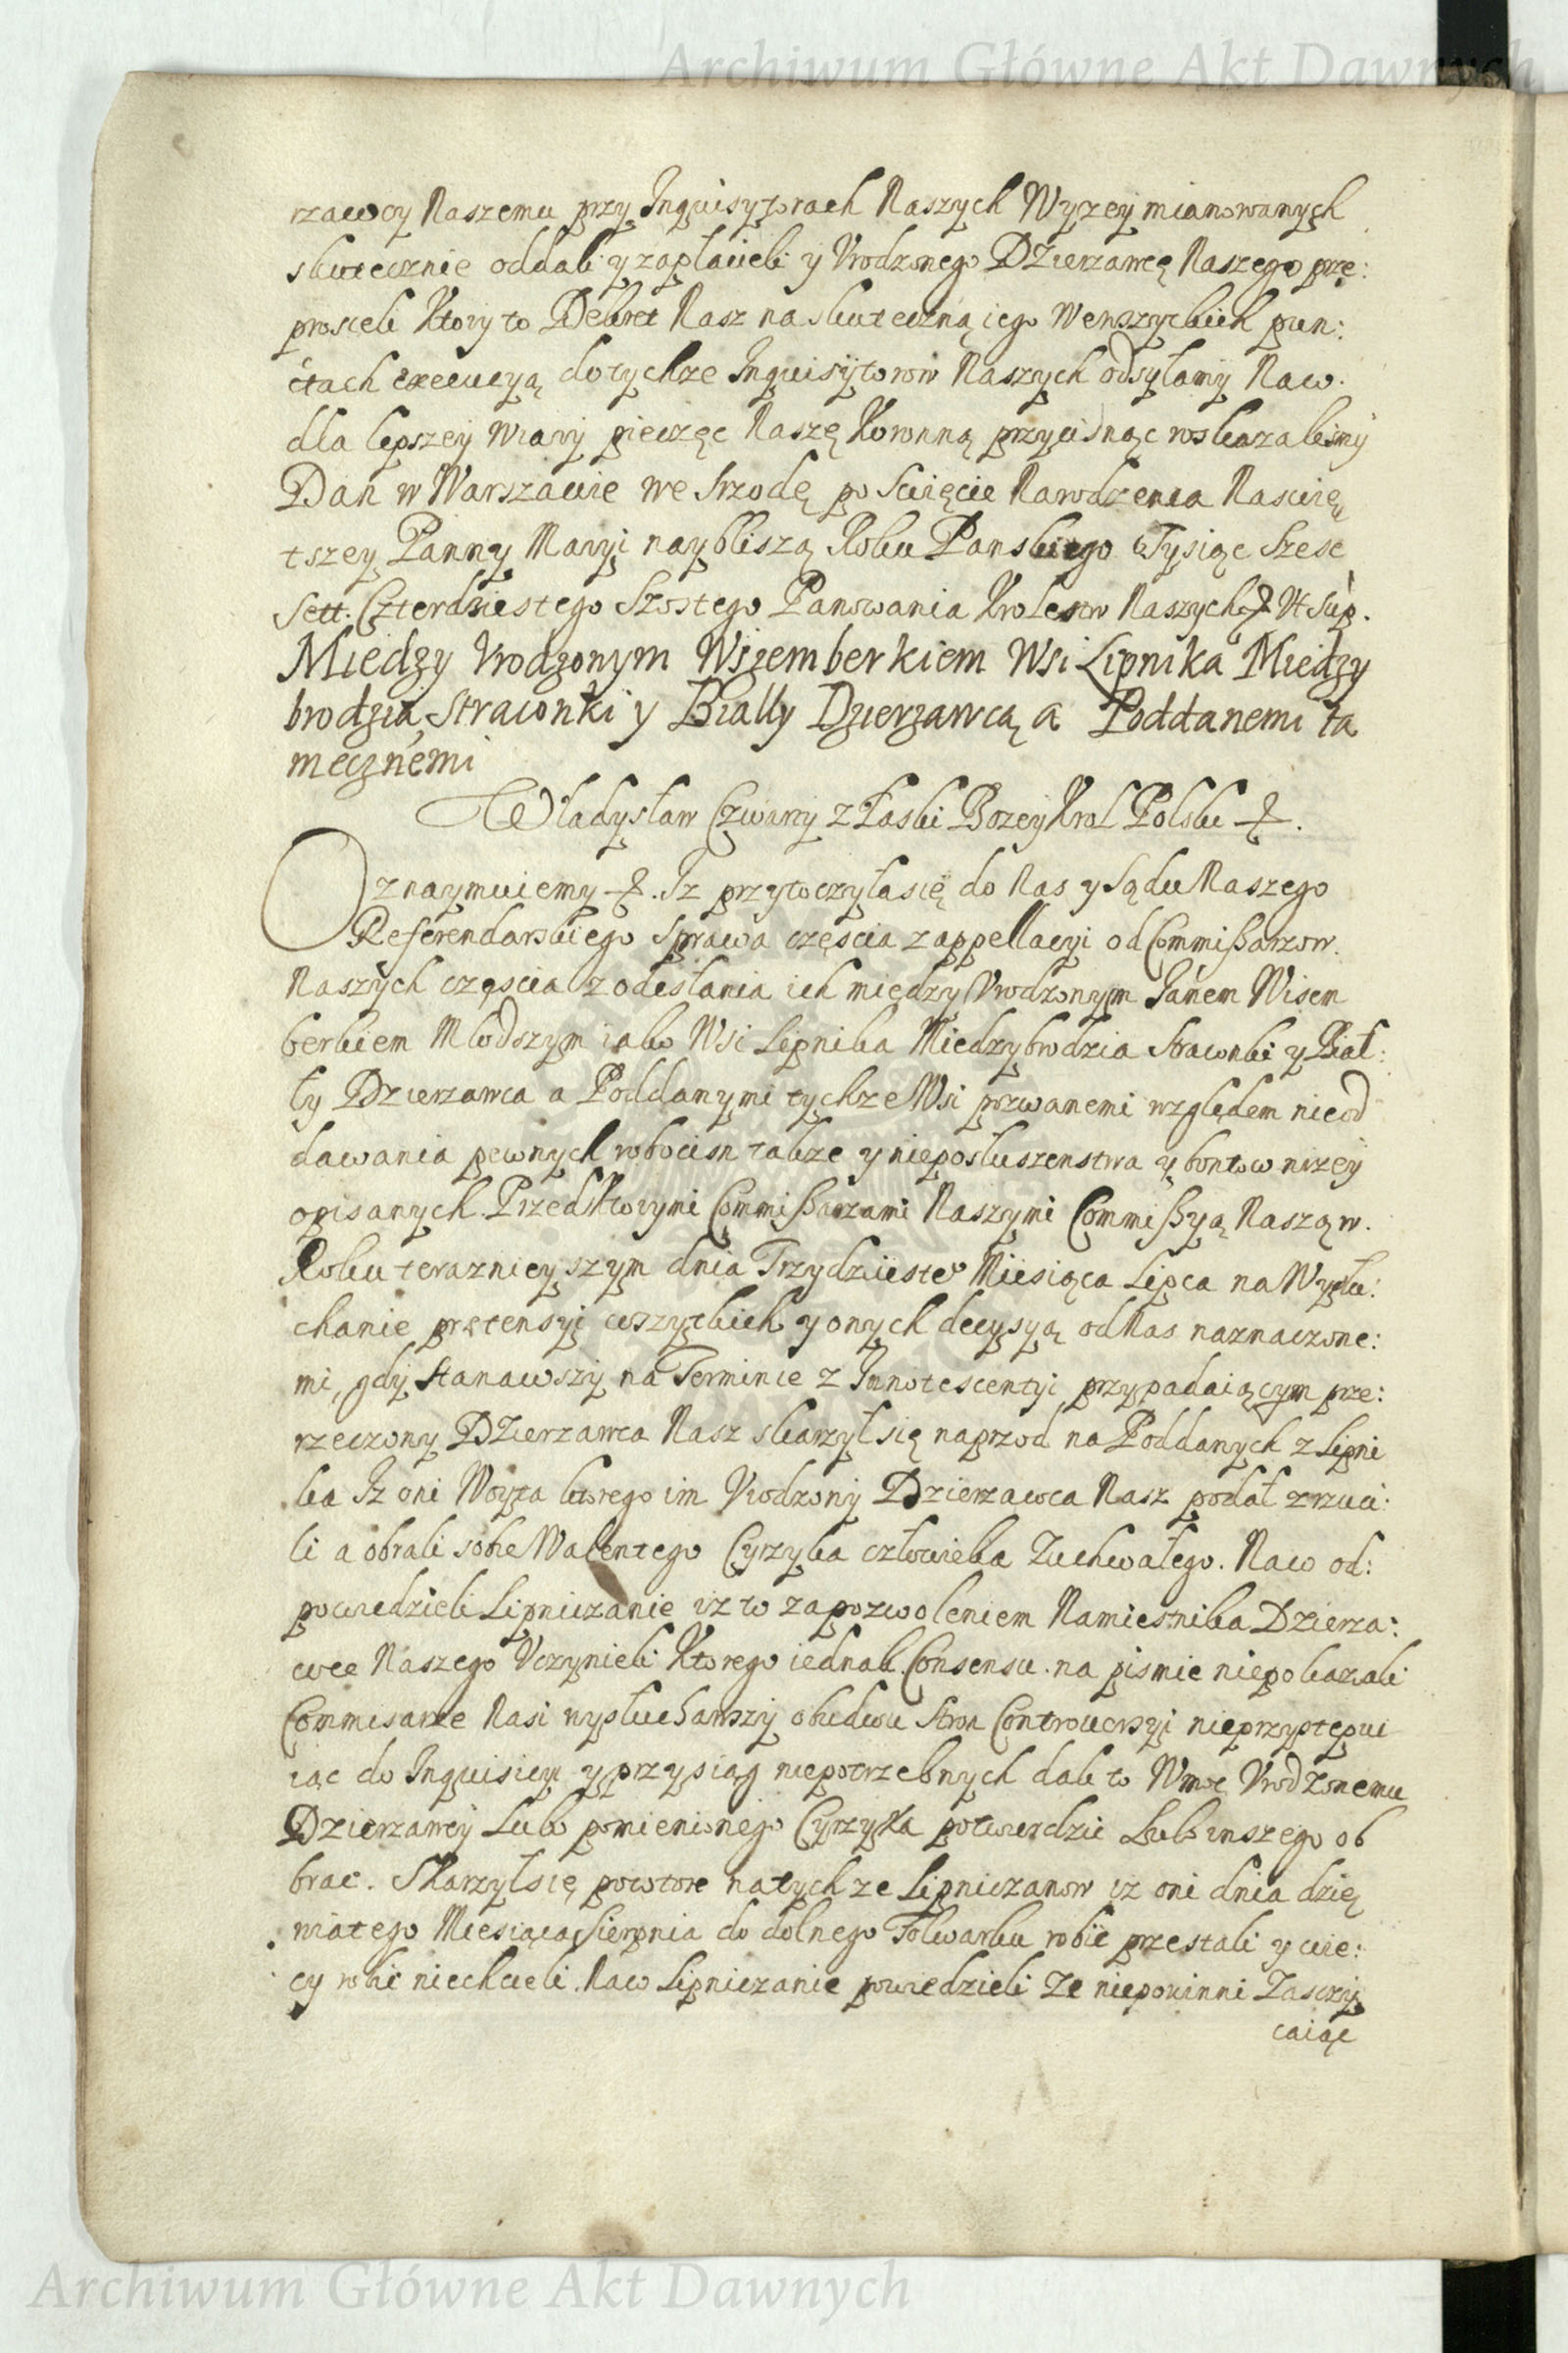 Archiwum Główne Akt Dawnych
rzawcy Naszemu przy Inquisytorach Naszych Wyzey mianowanych
skutecznie oddali y zapłacieli y Vrodzonego Dzierzawcę Naszego prze:
prosieli Ktory to Dekret Nasz na skuteczną iego We wszyckich pun:
ctach execucyą do tychze Inquisytorow Naszych odsyłamy Naco.
dla lepszey Wiary pieczęc Naszę Koronną przycisnąc roskazalismy
Dan w Warszawie We Srzodę po Scięcie Narodzenia Nascię
tszey Panny Maryi naybliszą Roku Panskiego Tysiąc Szesc
Sett. Czterdziestego Szostego Panowania Krolestw Naszych & Vt Sup.
Miedzy Vrodzonym Wizemberkiem Wsi Lipnika Miedzy
brodzia, Straconki y Bially Dzierzawcą a Poddanemi ta
mecznemi
Władysław Czwarty z Łaski Bozey Krol Polski &.
Oznaymuiemy &. Iz przytoczyła się do Nas y Sądu Naszego
Referendarskiego Sprawa częscia z appellacyi od Commißarzow.
Naszych częscia z odesłania ich między Vrodzonym Janem Wisem
berkiem Młodszym iako Wsi Lipnika Miedzybrodzia Straconki y Biał:
ły Dzierzawca a Poddanymi tychze Wsi pozwanemi względem nieod
dawania pewnych robocisn takze y nieposłuszenstwa y bontow nizey
opisanych. Przed Ktorymi Commißarzami Naszymi Commißyą Naszą w.
Roku teraznieyszym dnia Trzydzieste° Miesiąca Lipca na Wysłu:
chanie prętensyi wszytkich y onych decysyą od Nas naznaczone:
mi, gdy Stanawszy na Terminie z Innotescentyi przypadaiącym prze:
rzeczony Dzierzawca Nasz skarzył się naprzod na Poddanych z Lipni
ka Iz oni Woyta ktorego im Vrodzony Dzierzawca Nasz podał zrzuci:
li a obrali sobie Walentego Cyrzyka człowieka Zuchwałego. Naco od:
powiedzieli Lipniczanie iz to za pozwoleniem Namiesnika Dzierza:
wce Naszego Vczynieli Ktorego iednak Consensu na pismie niepokazali
Commisarze Nasi wysłuchawszy obudwu Stron Controuersyi nieprzystępui
iąc do Inquisicyi y przysiąg niepotrzebnych dali to W moc Vrodzonemu
Dzierzawcy Lubo pomienionego Cyrzyka potwierdzic Lub inszego ob
brac. Skarzył się powtore na tychze Lipniczanow iz oni dnia dzię
wiatego Miesiąca Sierpnia do dolnego Folwarku robic przestali y wie:
cy robic niechcieli. Naco Lipniczanie powiedzieli Ze niepowinni Zasczy
caiąc
Archiwum Główne Akt Dawnych